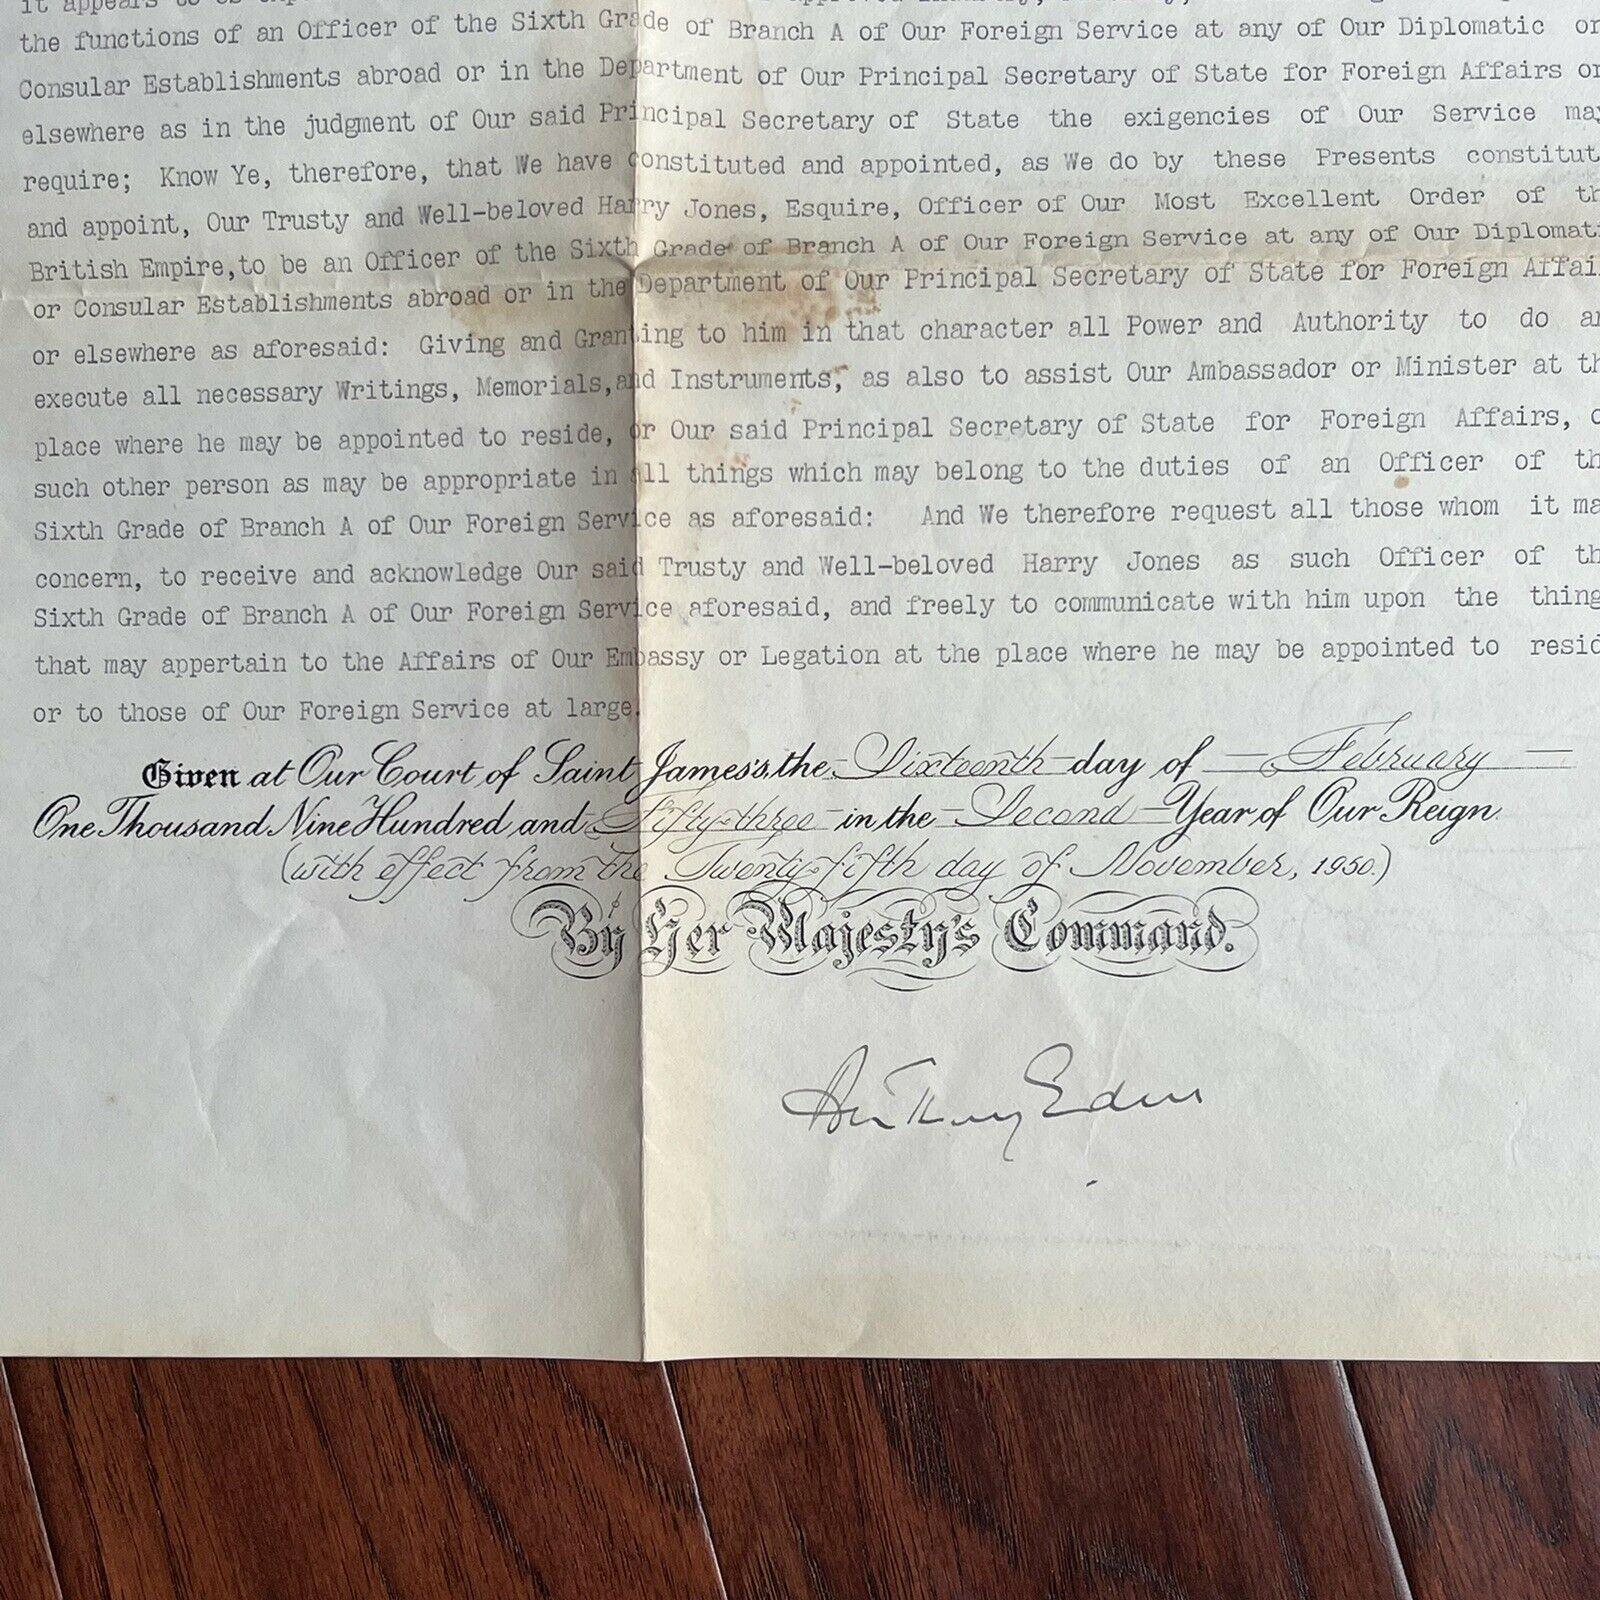 it appears to Us
the functions of an Officer of the Sixth Grade of Branch A of Our Foreign Service at any of Our Diplomatic or
Consular Establishments abroad or in the Department of Our Principal Secretary of State for Foreign Affairs or
elsewhere as in the judgment of Our said Principal Secretary of State the exigencies of Our Service may
require; Know Ye, therefore, that We have constituted and appointed, as We do by these Presents constitut
and appoint, Our Trusty and Well-beloved Harry Jones, Esquire, Officer of Our Most Excellent Order of th
British Empire,to be an Officer of the Sixth Grade of Branch A of Our Foreign Service at any of Our Diplomati
or Consular Establishments abroad or in the Department of Our Principal Secretary of State for Foreign Affai
or elsewhere as aforesaid: Giving and Granting to him in that character all Power and Authority to do an
execute all necessary Writings, Memorials,and Instruments, as also to assist Our Ambassador or Minister at th
place where he may be appointed to reside, or Our said Principal Secretary of State for Foreign Affairs, o
such other person as may be appropriate in all things which may belong to the duties of an Officer of th
Sixth Grade of Branch A of Our Foreign Service as aforesaid: And We therefore request all those whom it ma
concern, to receive and acknowledge Our said Trusty and Well-beloved Harry Jones as such Officer of th
Sixth Grade of Branch A of Our Foreign Service aforesaid, and freely to communicate with him upon the thing
that may appertain to the Affairs of Our Embassy or Legation at the place where he may be appointed to resid
or to those of Our Foreign Service at large.
Given at Our Court of Saint James's, the Sixteenth day of February
One Thousand Nine Hundred and Fifty-three in the Second Year of Our Reign.
(with effect from the Twenty-fifth day of November, 1950.)
By Her Majesty's Command.
Anthony Eden